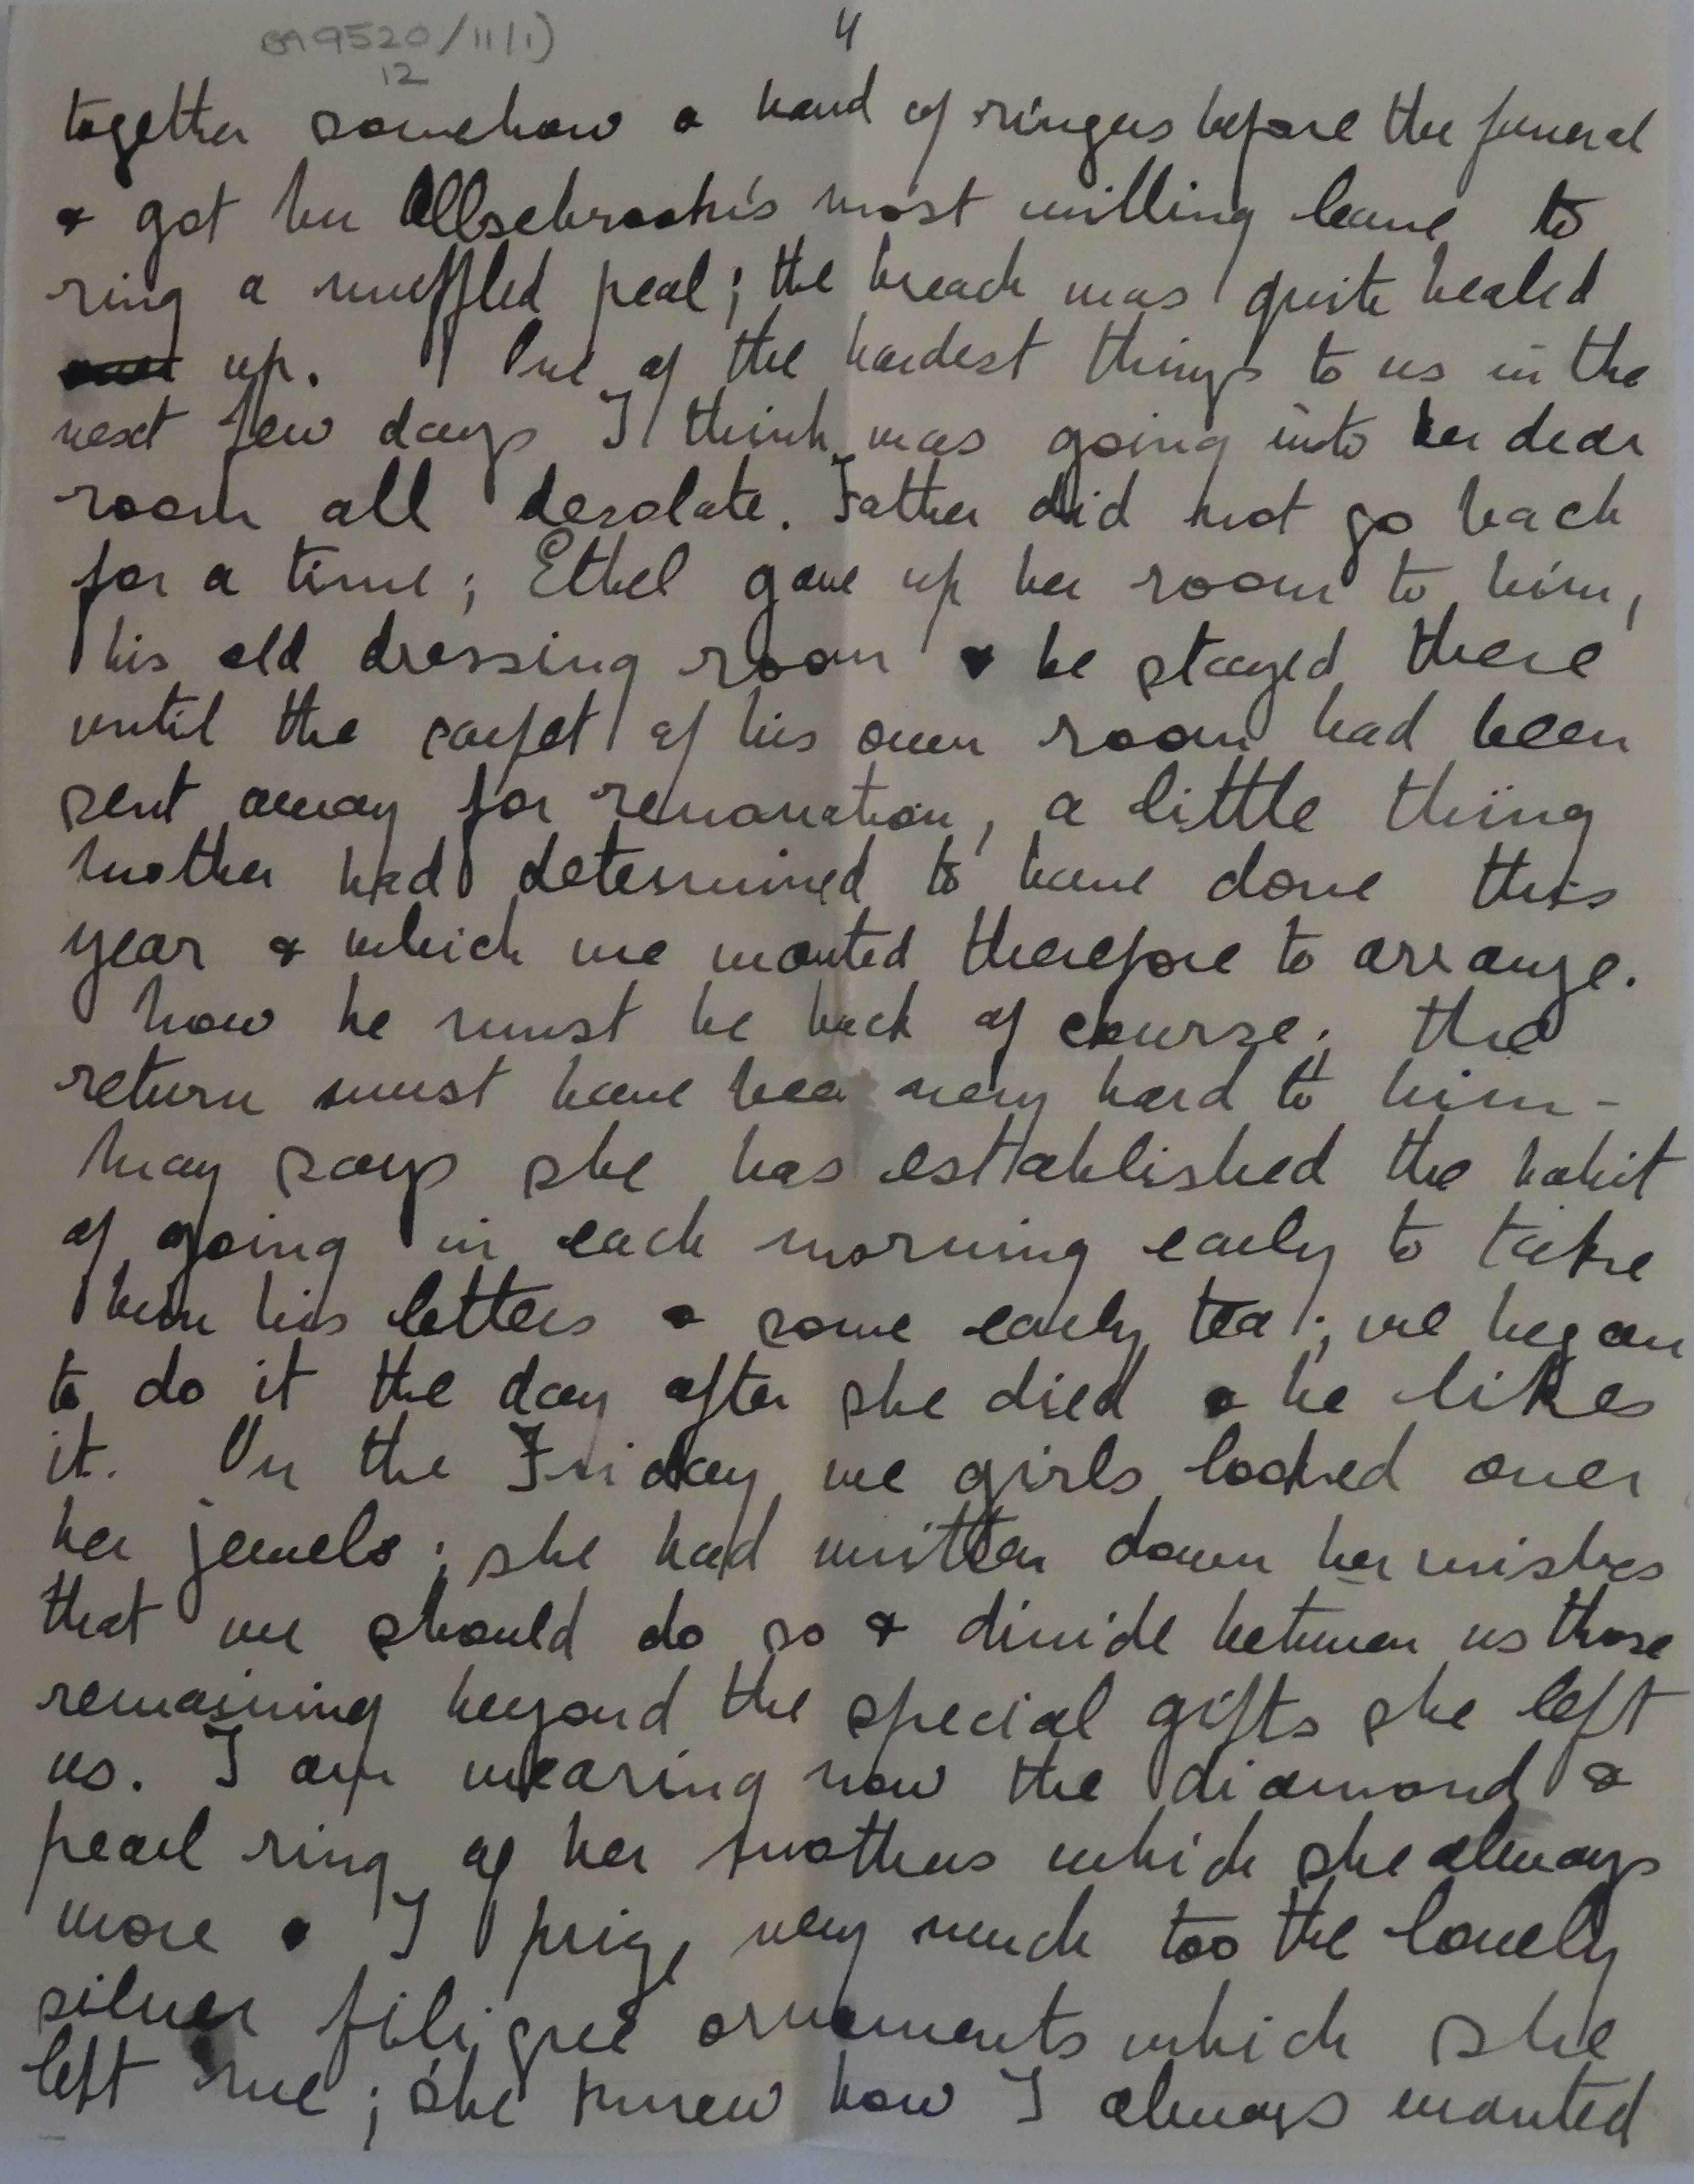 BA9520/11(1)
12
4
together somehow a band of ringers before the funeral
& got Mr Allsebrook's most willing leave to
ring a muffled peal; the breach was quite healed
up. One of the hardest things to us in the
next few days I think was going into her dear
room all desolate. Father did not go back
for a time; Ethel gave up her room to him,
his old dressing room & he stayed there
until the carpet of his own room had been
sent away for renovation, a little thing
Mother had determined to have done this
year & which we wanted therefore to arrange.
Now he must be back of course; the
return must have been very hard to him -
May says she has established the habit
of going in each morning early to take
him his letters & some early tea; we began
to do it the day after she died & he likes
it. On the Friday we girls looked over
her jewels; she had written down her wishes
that we should do so & divide between us those
remaining beyond the special gifts she left
us. I am wearing now the diamond &
pearl ring of her mothers which she always
wore & I prize very much too the lovely
silver filigree ornaments which she
left me; she knew how I always wanted